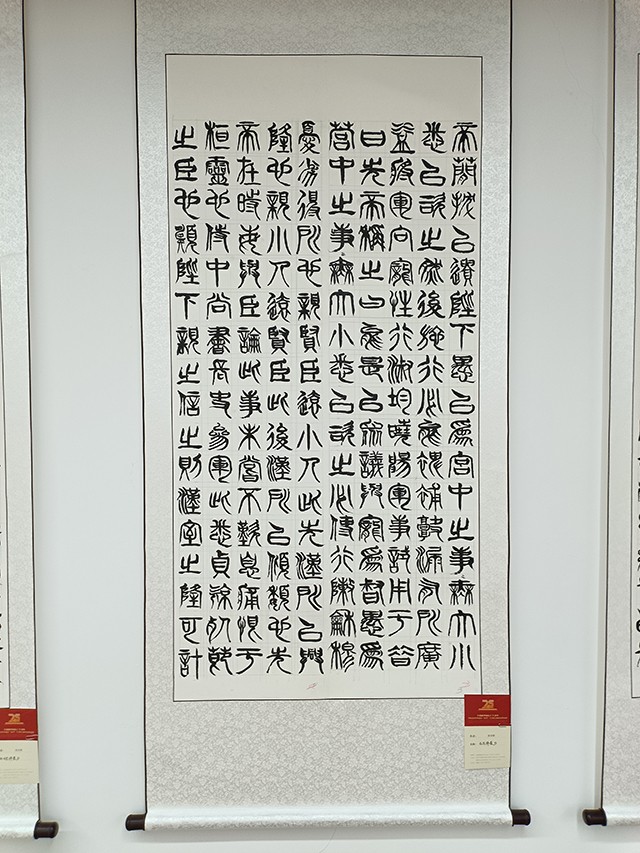 帝簡拔以遺陛下愚以爲宮中之事無大小
悉以諮之然後施行必能裨補闕漏有所廣
益將軍向寵性行淑均曉暢軍事試用于昔
日先帝稱之曰能是以衆議舉寵爲督愚爲
營中之事無大小悉以諮之必使行陳龢穆
憂劣得所也親賢臣遠小人此先漢所以興
隆也親小人遠賢臣此後漢所以傾頹也先
帝在時每與臣論此事未嘗不歎息痛恨于
桓靈也侍中尚書長史參軍此悉貞諒死節
之臣也願陛下親之信之則漢室之隆可計